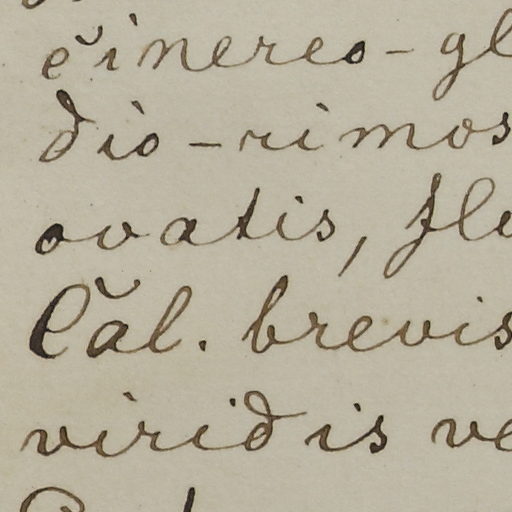 cinereo-gl
dio-rimos
ovatis, flo
Cal. brevis
viridis ve